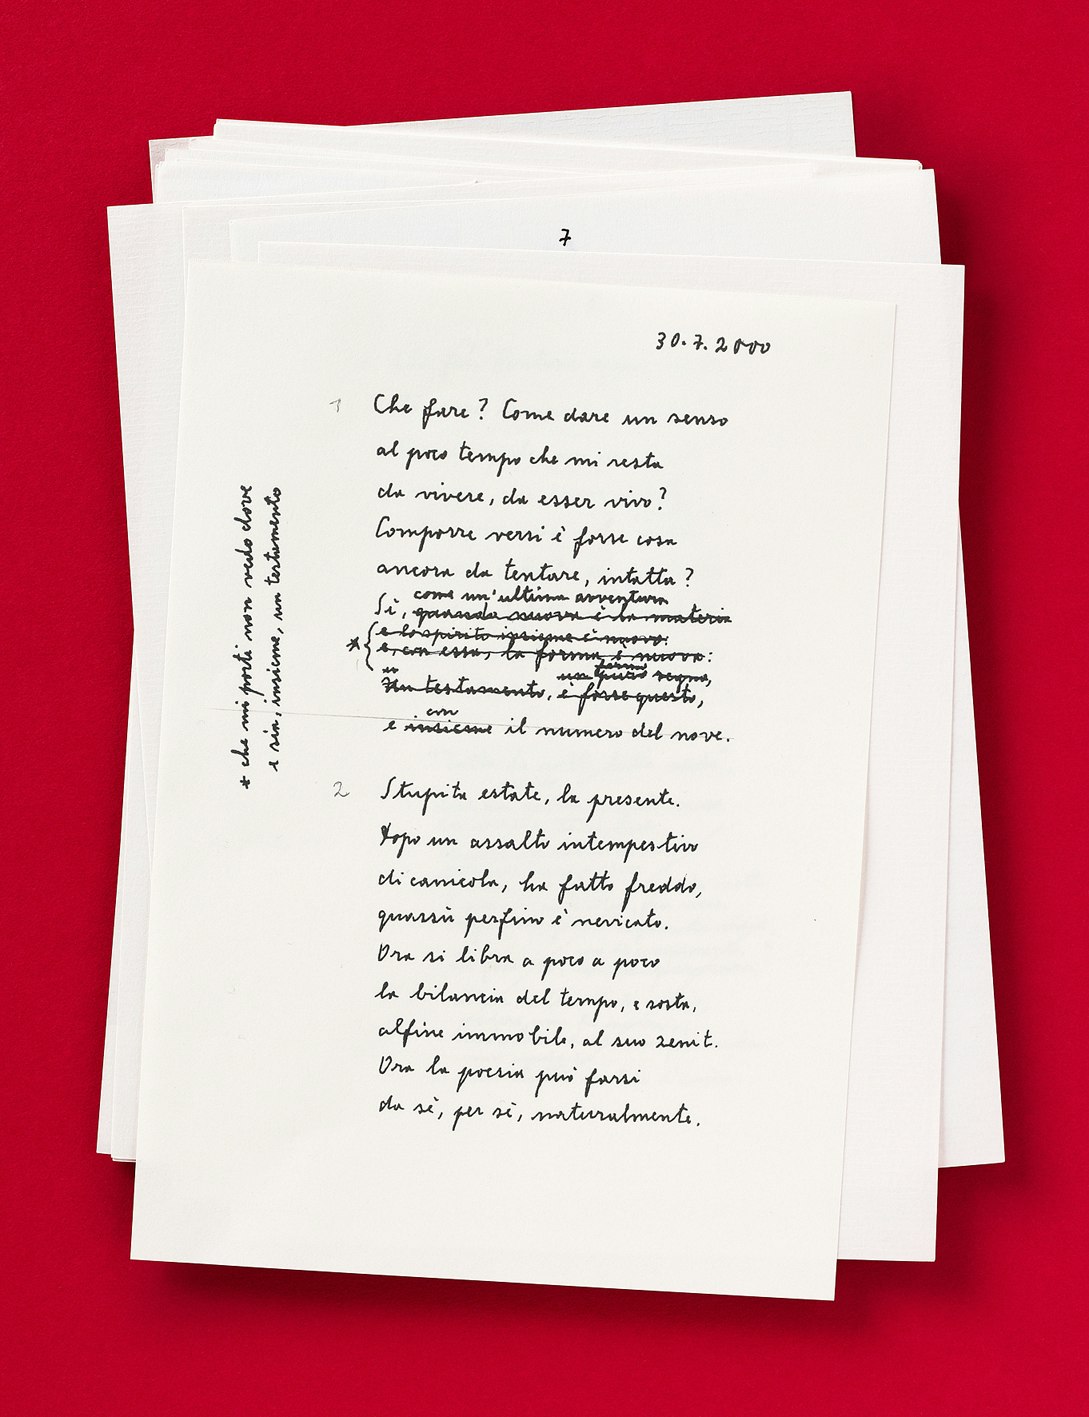 7
30.7.2000
1 Che fare? Come dare un senso
al poco tempo che mi resta
da vivere, da esser vivo?
Comporre versi è forse cosa
ancora da tentare, intatta?
come un'ultima avventura
Sì, quando nuova è la materia
e lo spirito insieme è nuovo:
* e, con essa, la forma è nuova:
un fermo segno,
Un testamento, è forse questo,
con
e insieme il numero del nove.
* che mi porti non vedo dove
e sia, insieme, un testamento
2 Stupita estate, la presente.
Dopo un assalto intempestivo
di canicola, ha fatto freddo,
quassù perfino è nevicato.
Ora si libra a poco a poco
la bilancia del tempo, e sosta,
alfine immobile, al suo zenit.
Ora la poesia può farsi
da sé, per sé, naturalmente.